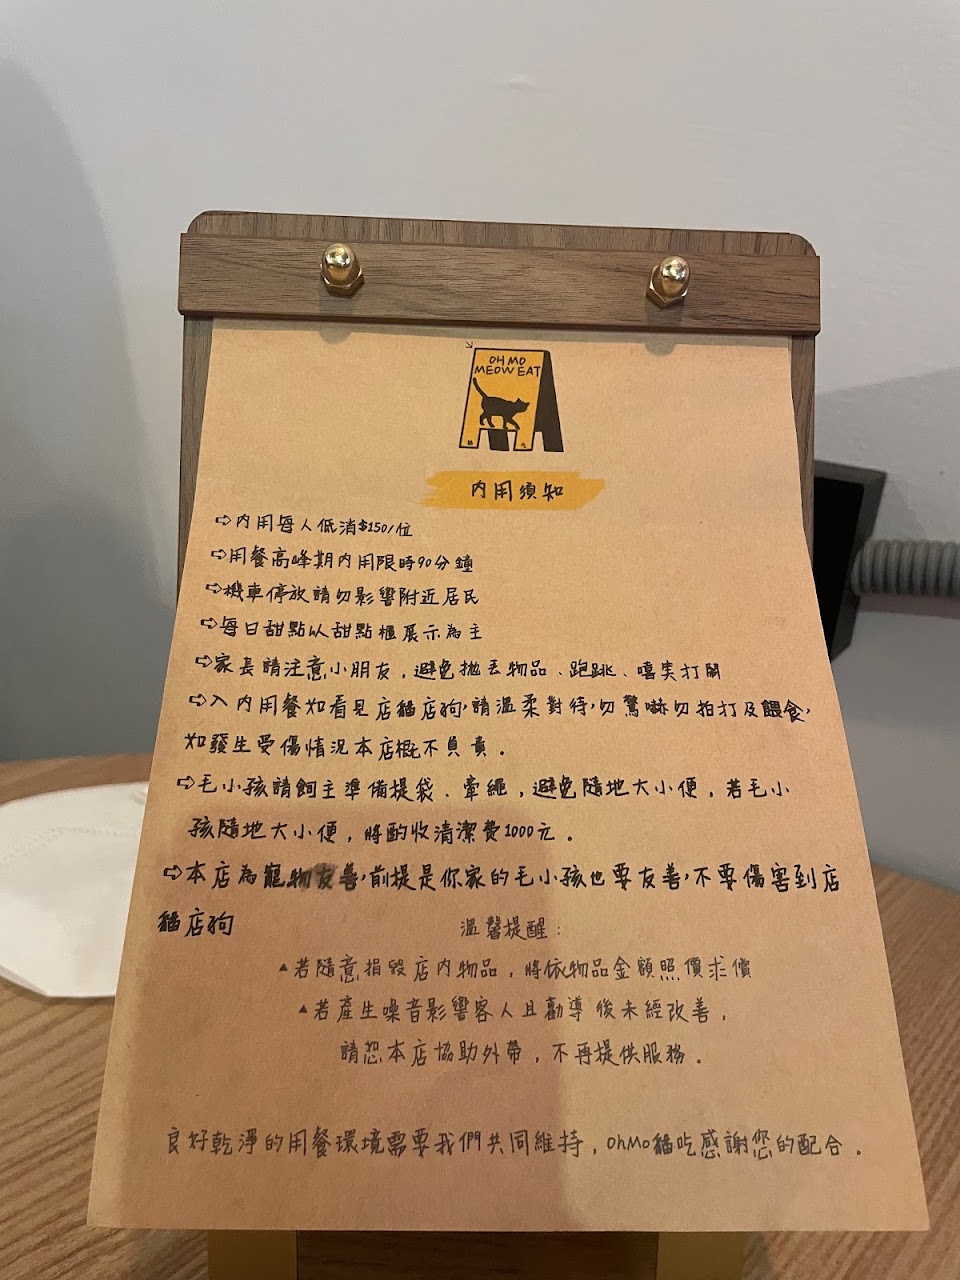 OH MO
MEOW EAT
貓 吃
內用須知
⇨內用每人低消$150/位
⇨用餐高峰期內用限時90分鐘
⇨機車停放請勿影響附近居民
⇨每日甜點以甜點櫃展示為主
⇨家長請注意小朋友，避免拋丟物品、跑跳、嘻笑打鬧
⇨入內用餐如看見店貓店狗，請溫柔對待，勿驚嚇勿拍打及餵食，
如發生受傷情況本店概不負責。
⇨毛小孩請飼主準備提袋、牽繩，避免隨地大小便，若毛小
孩隨地大小便，將酌收清潔費1000元。
⇨本店為寵物友善，前提是你家的毛小孩也要友善，不要傷害到店
貓店狗
溫馨提醒：
▲若隨意損毀店內物品，將依物品金額照價求償
▲若產生噪音影響客人且勸導後未經改善，
請恕本店協助外帶，不再提供服務。
良好乾淨的用餐環境需要我們共同維持，OhMo貓吃感謝您的配合。